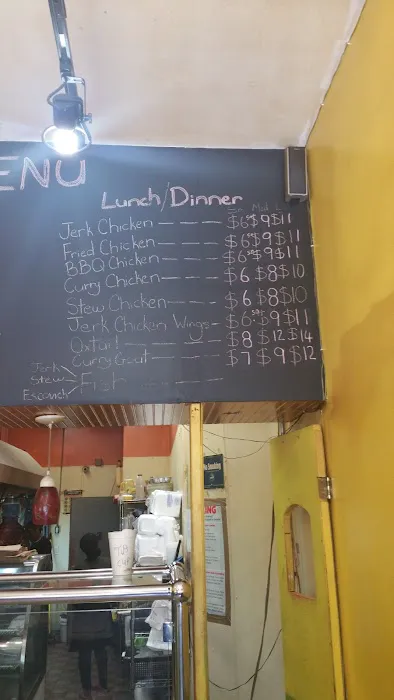 ENU
Lunch/Dinner
Sm Med L
Jerk Chicken — — — $6.50 $9 $11
Fried Chicken — — — $6.50 $9 $11
BBQ Chicken — — — $6.50 $9 $11
Curry Chicken — — — $6 $8 $10
Stew Chicken — — — $6 $8 $10
Jerk Chicken Wings - $6.50 $9 $11
Oxtail — — — $8 $12 $14
Curry Goat — — — $7 $9 $12
Jerk
Stew
Escovich
Fish — — —